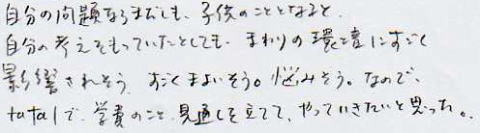 自分の問題ならまだしも、子供のこととなると、
自分の考えをもっていたとしても、まわりの環境にすごく
影響されそう。すごくまよいそう。悩みそう。なので、
totalで、学費のこと、見通しを立てて、やっていきたいと思った。